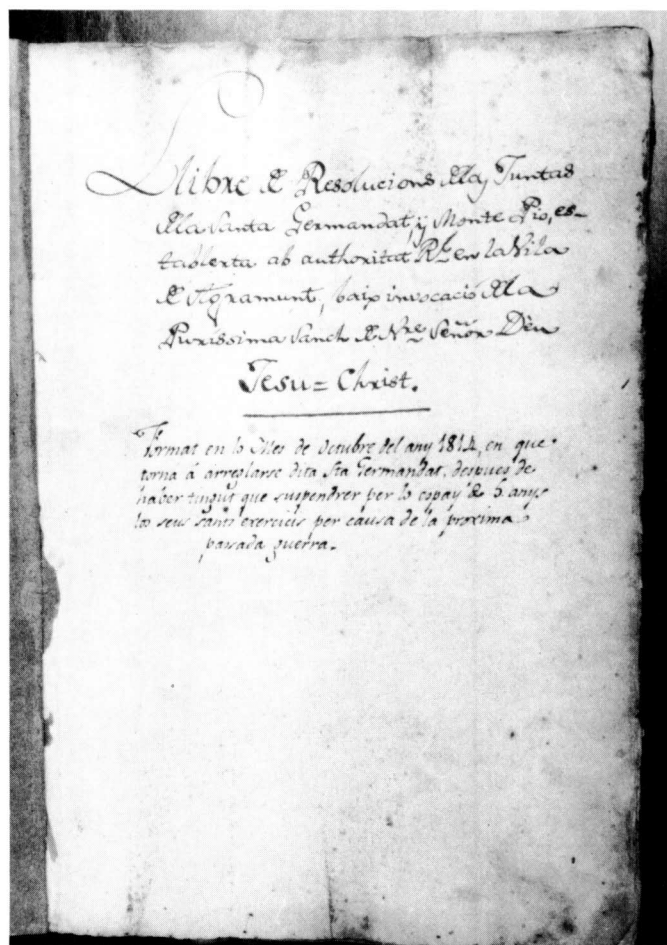 Llibre de Resolucions de las Juntas
de la Santa Germandat, y Monte Pio, es-
tablerta ab authoritat Rl. en la Vila
de Agramunt, baix invocació de la
Puríssima Sanch de Nre. Señor Déu
Jesu=Christ.
Format en lo Mes de Octubre del any 1814, en que
torná á arreglarse dita Sta Germandat, despues de
haber tingut que suspendrer per lo espay de 6. anys
los seus sants exercicis per causa de la proxima
passada guerra.